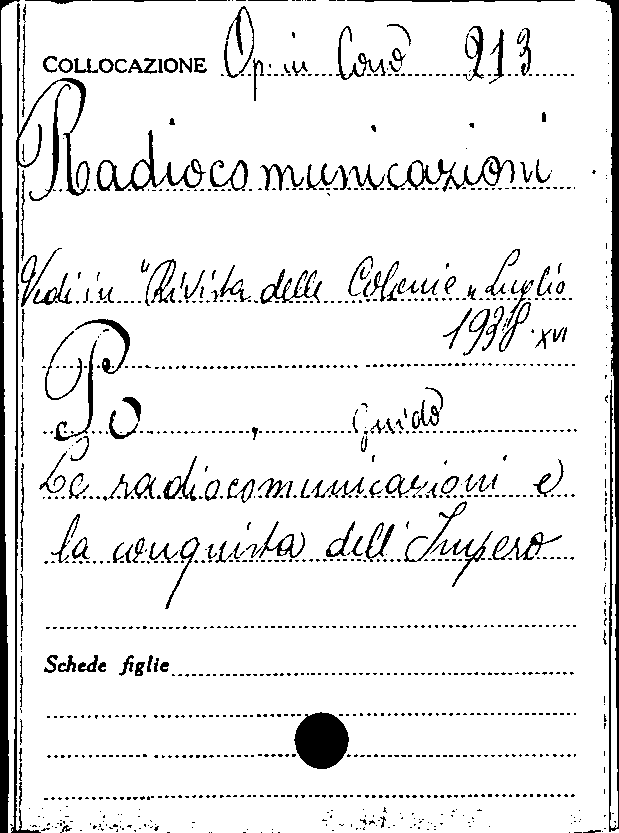 COLLOCAZIONE Op. in Cons 213
Radiocomunicazioni
Vedi in "Rivista delle Colonie" Luglio
1938. XVI
Po, Guido
Le radiocomunicazioni e
la conquista dell'Impero
Schede figlie